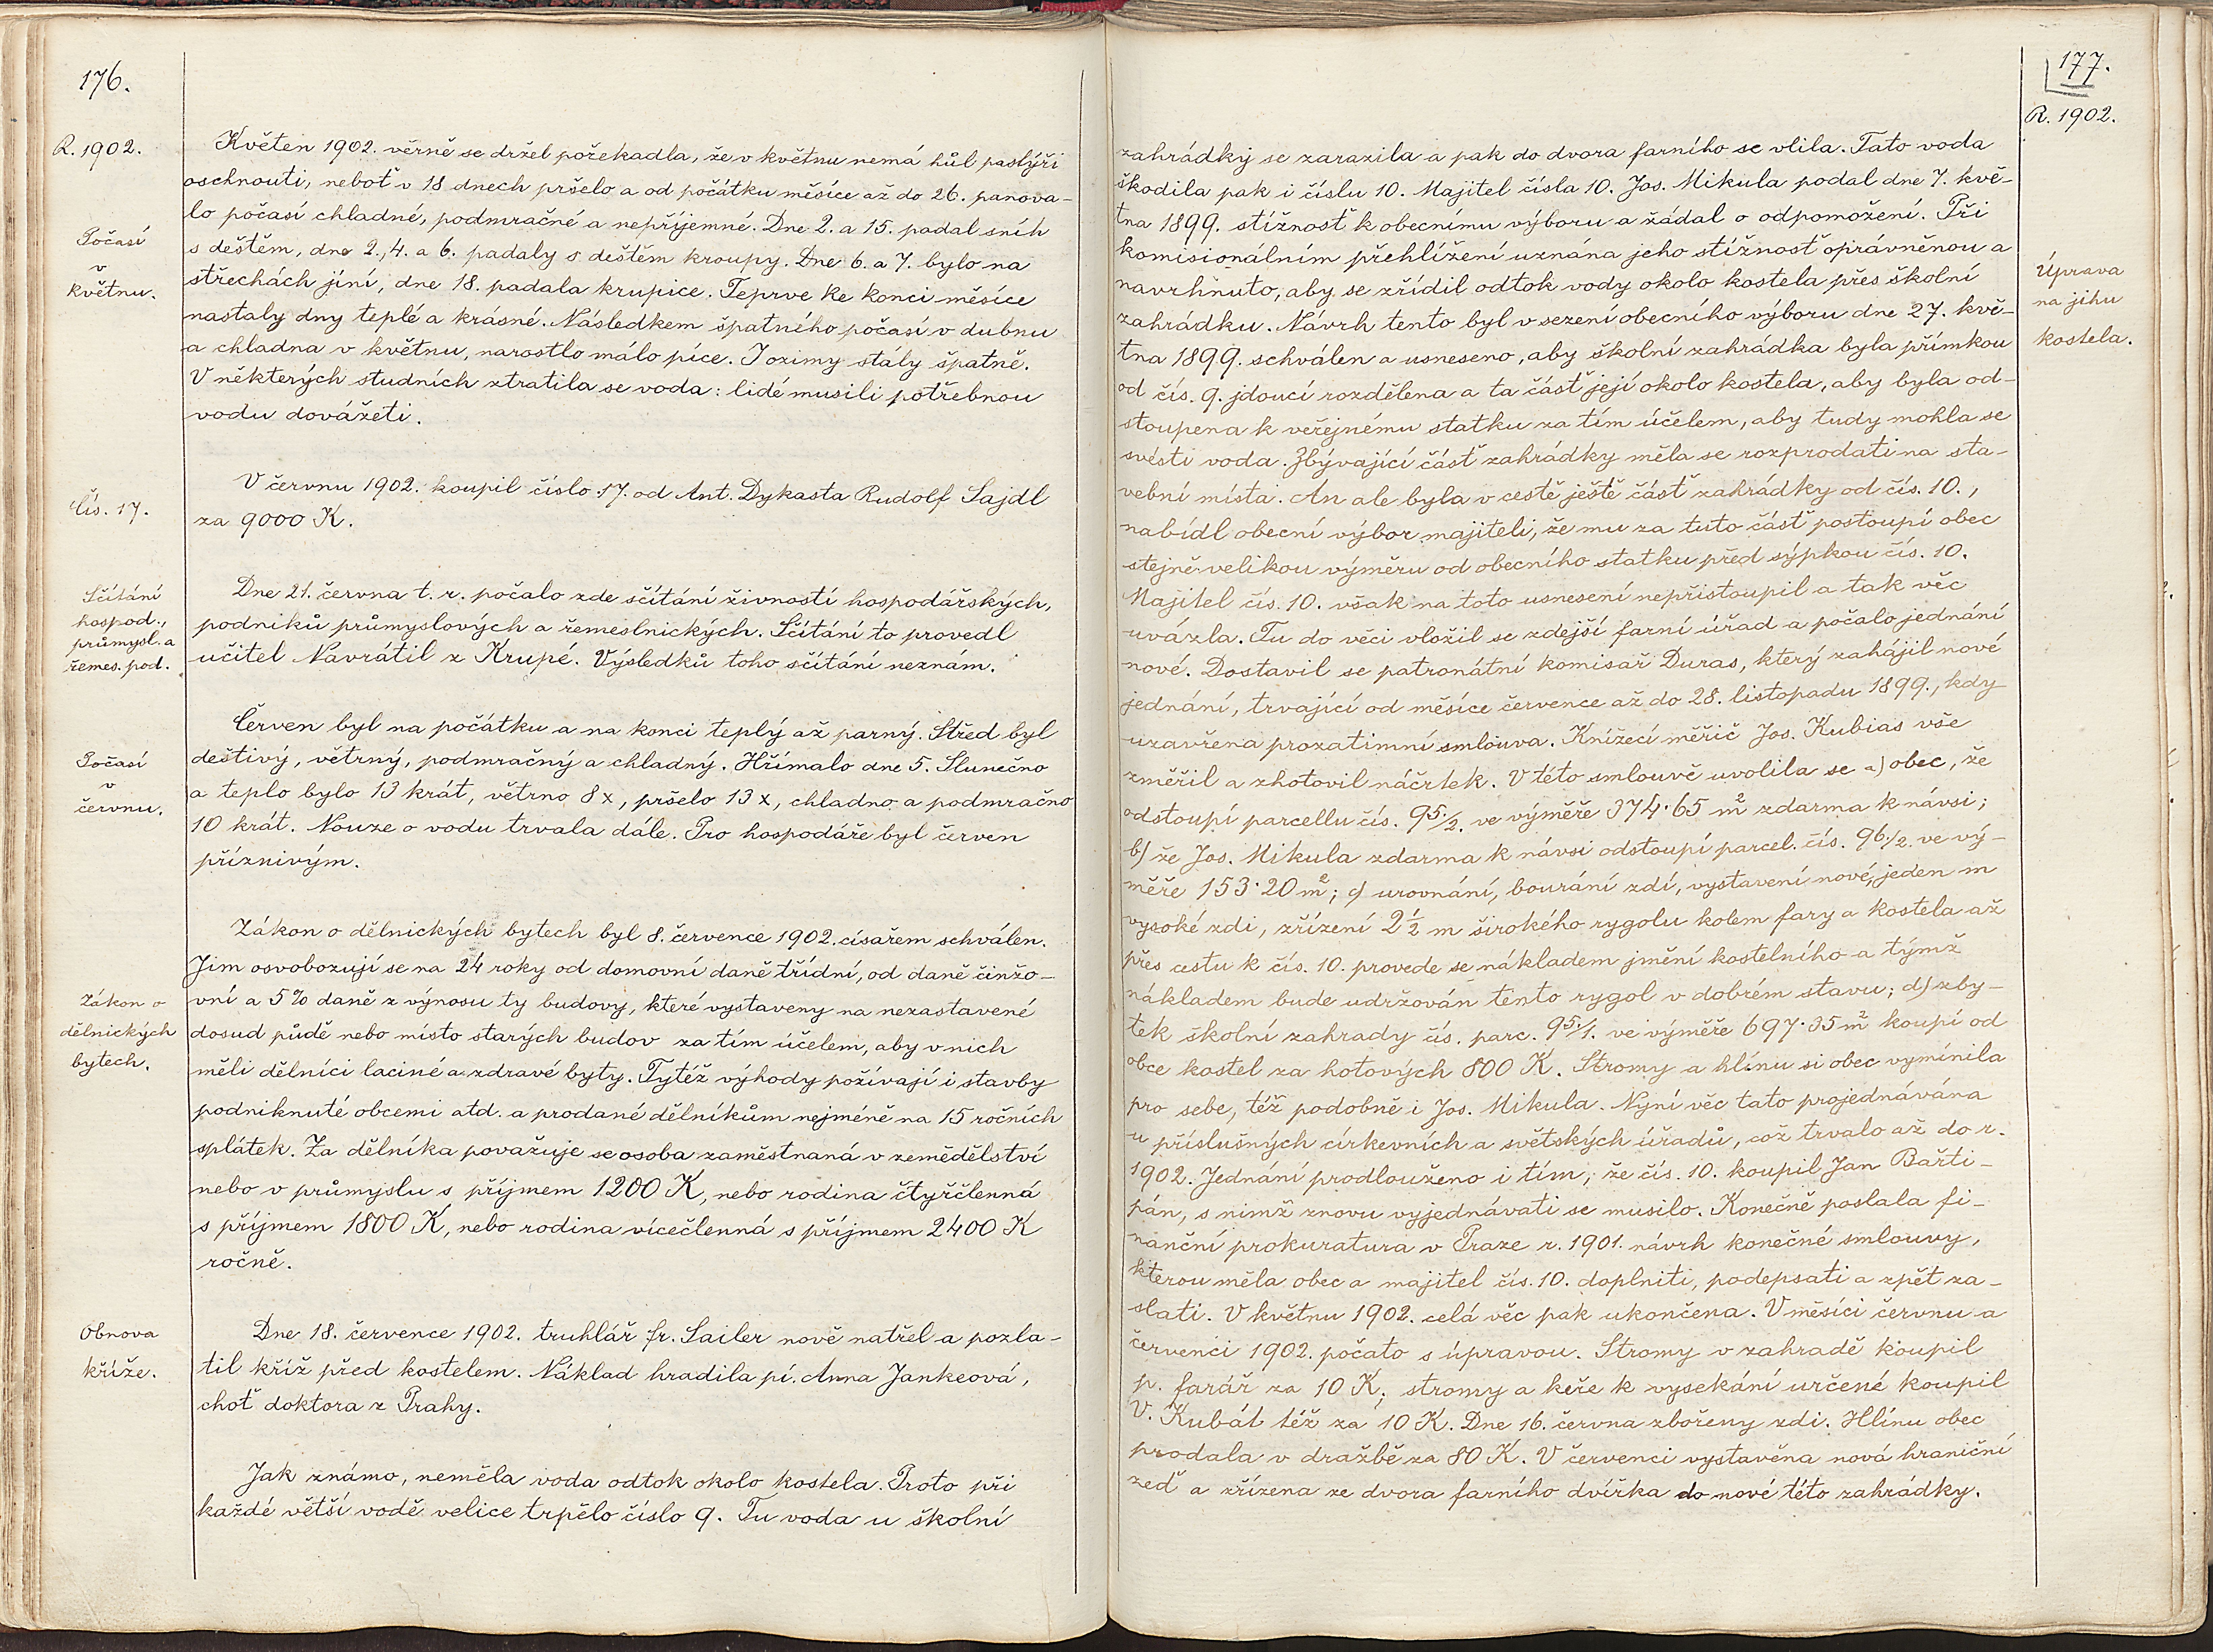 176.
R. 1902.
Květen 1902. věrně se držel pořekadla, že v květnu nemá hůl pastýři
oschnouti, neboť v 18 dnech pršelo a od počátku měsíce až do 26. panova-
lo počasí chladné, podmračné a nepříjemné. Dne 2. a 15. padal sníh
s deštěm, dne 2., 4. a 6. padaly s deštěm kroupy. Dne 6. a 7. bylo na
střechách jíní, dne 18. padala krupice. Teprve ke konci měsíce
nastaly dny teplé a krásné. Následkem špatného počasí v dubnu
a chladna v květnu, narostlo málo píce. I ozimy stály špatně.
V některých studních ztratila se voda: lidé musili potřebnou
vodu dovážeti.
Počasí
v
květnu.
V červnu 1902. koupil číslo 17. od Ant. Dykasta Rudolf Sajdl
za 9000 K.
Čís. 17.
Dne 21. června t. r. počalo zde sčítání živností hospodářských,
podniků průmyslových a řemeslnických. Sčítání to provedl
učitel Navrátil z Krupé. Výsledků toho sčítání neznám.
Sčítání
hospod.,
průmysl. a
řemes. pod.
Červen byl na počátku a na konci teplý až parný. Střed byl
deštivý, větrný, podmračný a chladný. Hřímalo dne 5. Slunečno
a teplo bylo 13 krát, větrno 8 x, pršelo 13 x, chladno a podmračno
10 krát. Nouze o vodu trvala dále. Pro hospodáře byl červen
příznivým.
Počasí
v
červnu.
Zákon o dělnických bytech byl 8. července 1902. císařem schválen.
Jim osvobozují se na 24 roky od domovní daně třídní, od daně činžo-
vní a 5% daně z výnosu ty budovy, které vystaveny na nezastavené
dosud půdě nebo místo starých budov za tím účelem, aby v nich
měli dělníci laciné a zdravé byty. Tytéž výhody požívají i stavby
podniknuté obcemi atd. a prodané dělníkům nejméně na 15 ročních
splátek. Za dělníka považuje se osoba zaměstnaná v zemědělství
nebo v průmyslu s příjmem 1200 K, nebo rodina čtyřčlenná
s příjmem 1800 K, nebo rodina vícečlenná s příjmem 2400 K
ročně.
Zákon o
dělnických
bytech.
Dne 18. července 1902. truhlář fr. Sailer nově natřel a pozla-
til kříž před kostelem. Náklad hradila pí. Anna Jankeová,
choť doktora z Prahy.
Obnova
kříže.
Jak známo, neměla voda odtok okolo kostela. Proto při
každé větší vodě velice trpělo číslo 9. Tu voda u školní
177.
R. 1902.
zahrádky se zarazila a pak do dvora farního se vlila. Tato voda
škodila pak i číslu 10. Majitel čísla 10. Jos. Mikula podal dne 7. kvě-
tna 1899. stížnosť k obecnímu výboru a žádal o odpomožení. Při
komisionálním přehlížení uznána jeho stížnosť oprávněnou a
navrhnuto, aby se zřídil odtok vody okolo kostela přes školní
zahrádku. Návrh tento byl v sezení obecního výboru dne 27. kvě-
tna 1899. schválen a usneseno, aby školní zahrádka byla přímkou
od čís. 9. jdoucí rozdělena a ta část její okolo kostela, aby byla od-
stoupena k veřejnému statku za tím účelem, aby tudy mohla se
svésti voda. Zbývající část zahrádky měla se rozprodati na sta-
vební místa. An ale byla v cestě ještě část zahrádky od čís. 10.,
nabídl obecní výbor majiteli, že mu za tuto část postoupí obec
stejně velikou výměru od obecního statku před sýpkou čís. 10.
Majitel čís. 10. však na toto usnesení nepřistoupil a tak věc
uvázla. Tu do věci vložil se zdejší farní úřad a počalo jednání
nové. Dostavil se patronátní komisař Duras, který zahájil nové
jednání, trvající od měsíce července až do 28. listopadu 1899., kdy
uzavřena prozatimní smlouva. Knížecí měřič Jos. Kubias vše
změřil a zhotovil náčrtek. V této smlouvě uvolila se a) obec, že
odstoupí parcellu čís. 95./2. ve výměře 374·65 m² zdarma k návsi;
b) že Jos. Mikula zdarma k návsi odstoupí parcel. čís. 96./2. ve vý-
měře 153·20 m²; c) urovnání, bourání zdí, vystavení nové, jeden m
vysoké zdi, zřízení 2½ m širokého rygolu kolem fary a kostela až
přes cestu k čís. 10. provede se nákladem jmění kostelního a týmž
nákladem bude udržován tento rygol v dobrém stavu; d) zby-
tek školní zahrady čís. parc. 95./1. ve výměře 697·35 m² koupí od
obce kostel za hotových 800 K. Stromy a hlínu si obec vymínila
pro sebe, též podobně i Jos. Mikula. Nyní věc tato projednávána
u příslušných církevních a světských úřadů, což trvalo až do r.
1902. Jednání prodlouženo i tím, že čís. 10. koupil Jan Bařti-
pán, s nímž znovu vyjednávati se musilo. Konečně poslala fi-
nanční prokuratura v Praze r. 1901. návrh konečné smlouvy,
kterou měla obec a majitel čís. 10. doplniti, podepsati a zpět za-
slati. V květnu 1902. celá věc pak ukončena. V měsíci červnu a
červenci 1902. počato s úpravou. Stromy v zahradě koupil
p. farář za 10 K; stromy a keře k vysekání určené koupil
V. Kubát též za 10 K. Dne 16. června zbořeny zdi. Hlínu obec
prodala v dražbě za 80 K. V červenci vystavěna nová hraniční
zeď a zřízena ze dvora farního dvířka do nové této zahrádky.
Úprava
na jihu
kostela.